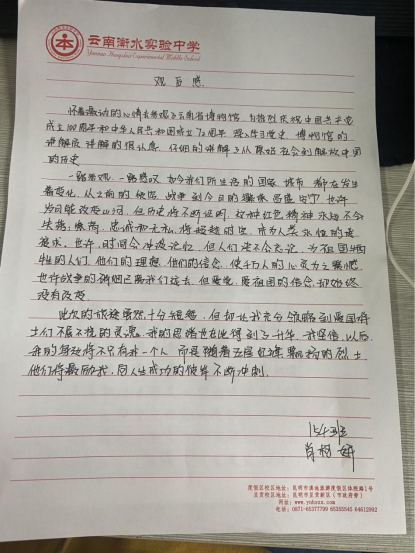 云南衡水实验中学
Yunnan Hengshui Experimental Middle School
观后感
怀着激动的心情去参观了云南省博物馆，为热烈庆祝中国共产党
成立100周年和中华人民共和国成立72周年 深入学习党史 博物馆的
讲解员讲解的很认真 仔细的讲解了从原始社会到解放中国
的历史
一路参观，一路感叹 如今我们所生活的国家、城市 都在发生
着变化，从之前的 战争到今日的 也许
岁月能改变山河，但历史将不断证明，这种红色精神永远不会
失落，崇高、忠诚和无私，将超越时空，成为人类永恒的
追求，也许，时间会冲淡记忆，但人们决不会忘记，为祖国牺
牲的人们，他们的理想，他们的信念，使千万人的心灵为之震憾
也许战争的硝烟已离我们远去，但爱党、爱祖国的信念却始终
没有改变
此次的旅途虽然十分短暂，但却让我充分领略到爱国将
士们不屈不挠的灵魂，我的思绪也在此得到了升华，我坚信，以后
我的身边将不只有我一个人，而是随着五星红旗飘扬的烈士
他们将激励我，向人生成功的彼岸不断冲刺.
154班
肖
度假区校区地址：昆明市滇池旅游度假区体路1号
呈贡校区地址：昆明市呈贡新区（市政府旁）
网址：www.ynhszx.com
电话：0871-65377799 65355545 64612992